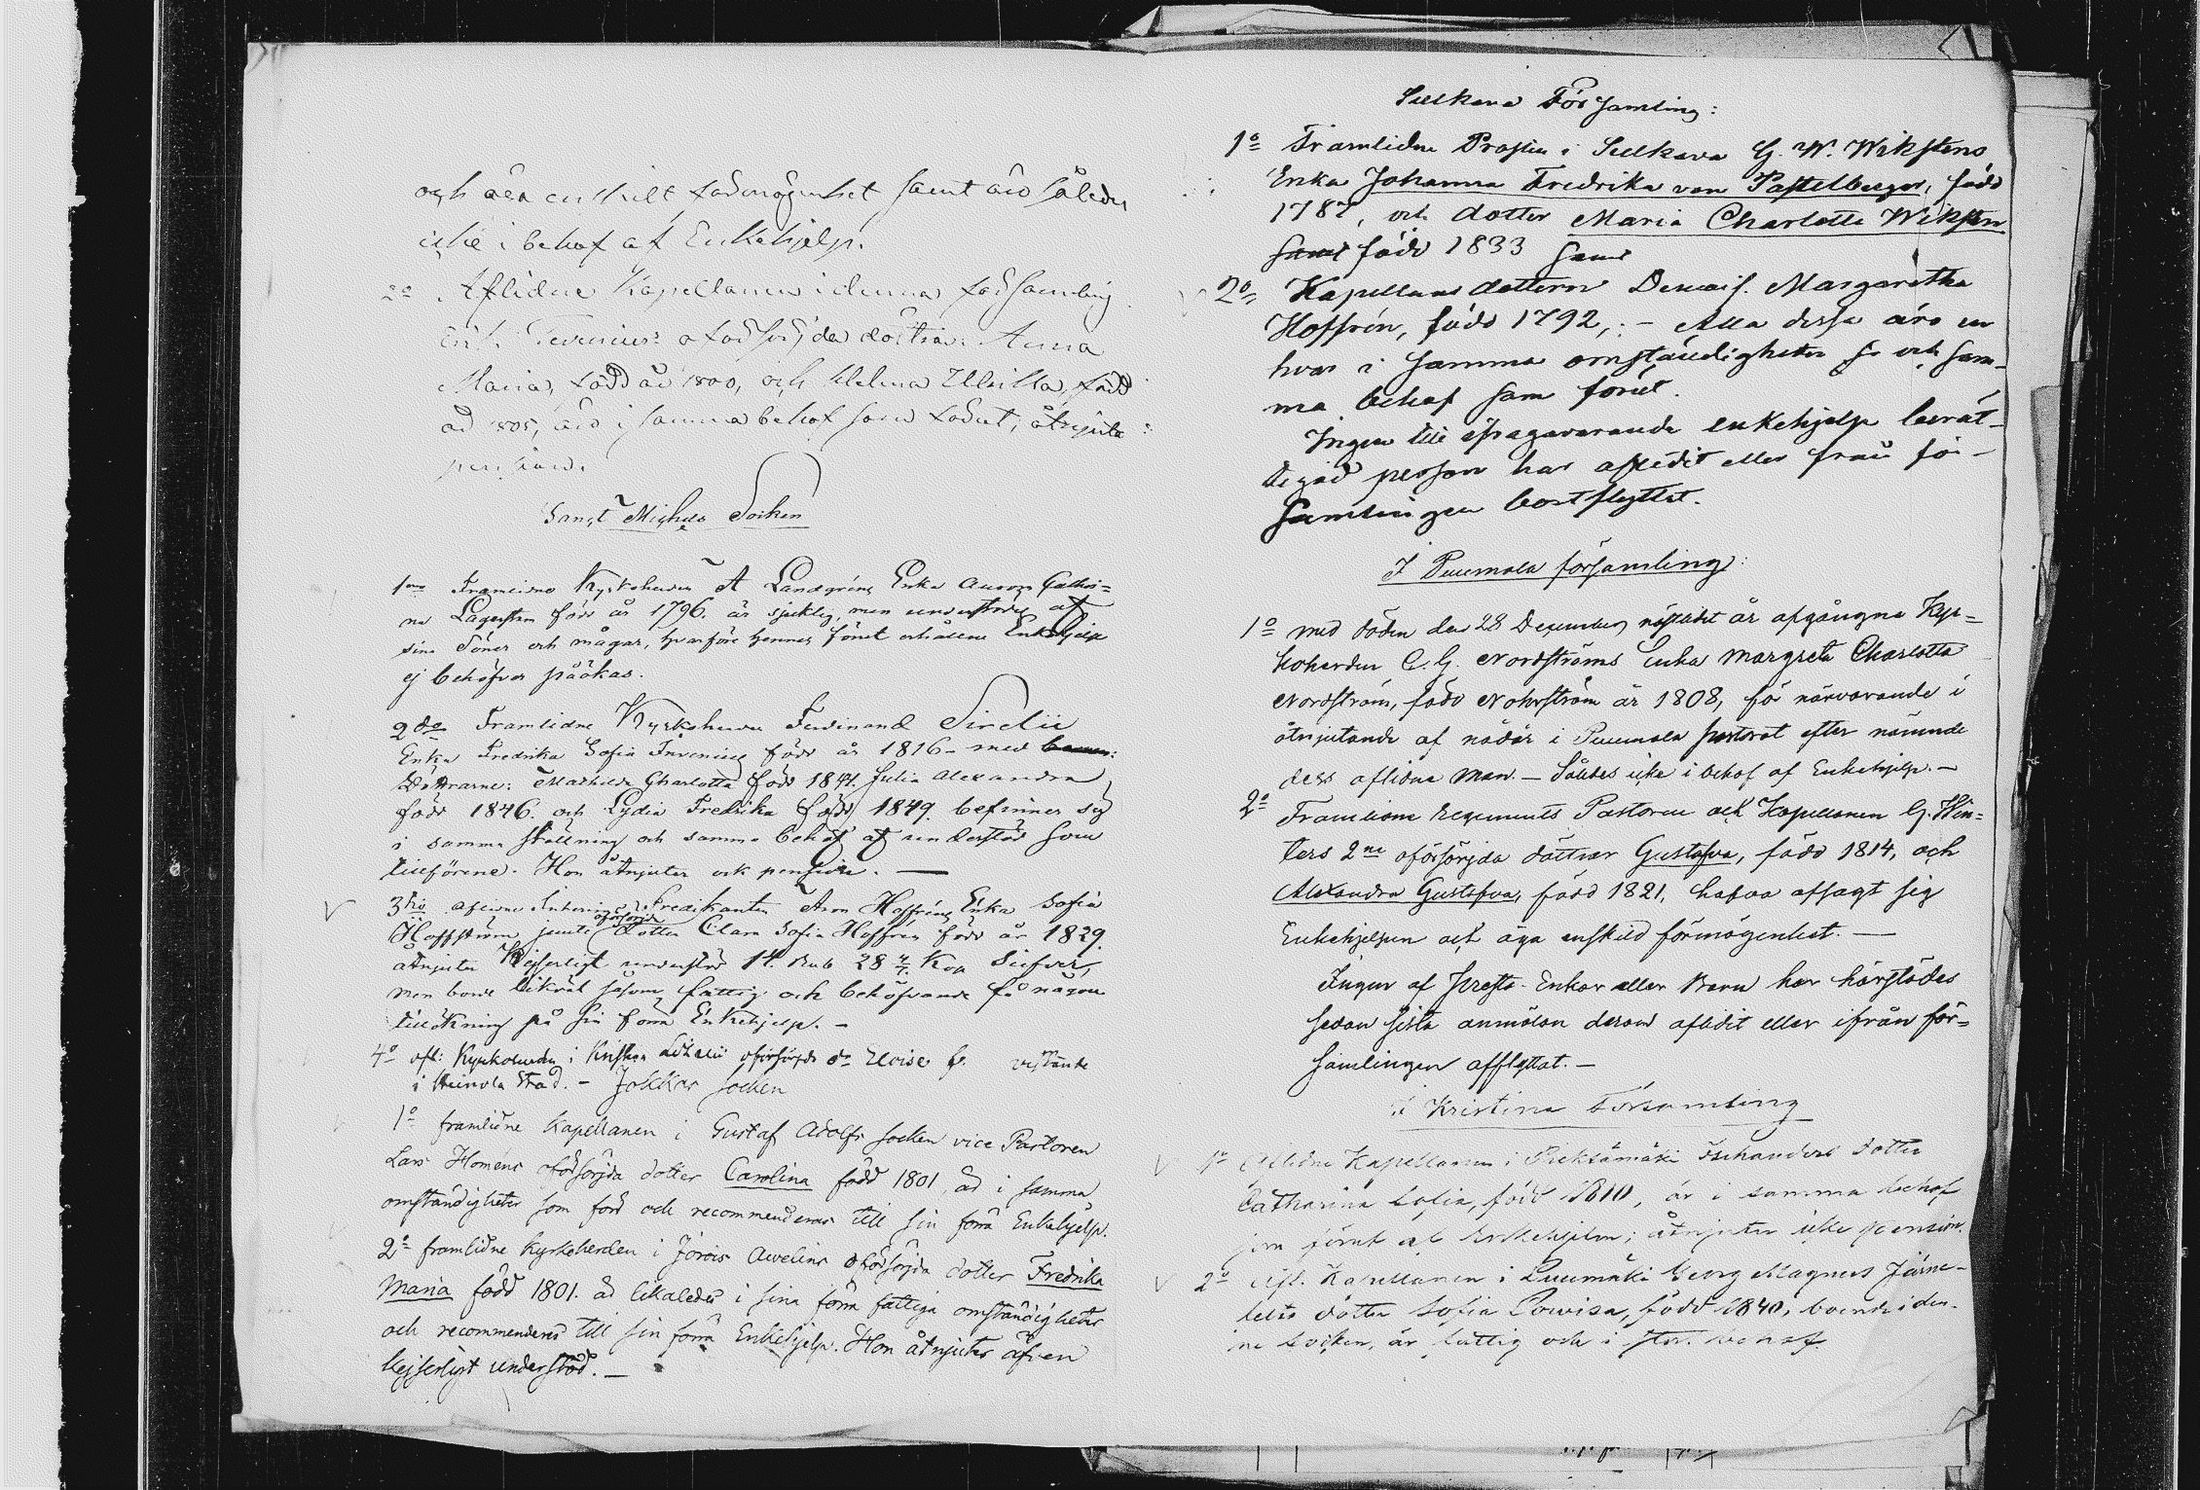 och äga enskilt förmögenhet samt äro således
icke i behof af Enkehjelp.
2o Aflidne Kapellanen i denna församling
Erik oförsörjda döttrar Anna
Maria, född år 1800, och Helena Ulrika, född
år 1805, äro i samma behof som förut, åtnjuta
pension.
Sanct Michels Socken
1mo Framlidne Kyrkoherden A Landgréns Enka Aurora Cathri=
na Lagerstam född år 1796. är sjuklig, men understödes af
sina Söner och mågar, hvarföre hennes förut erhållne Enkehjelp
ej behöfver påökas.
2do Framlidne Kyrkoherden Ferdinand Sirelii
Enka Fredrika Sofia Invenius född år 1816 - med
Döttrarne: Mathilda Charlotta född 1841. Julia Alexandra
född 1846. och Lydia Fredrika född 1849. befinner sig
i samma ställning och samma behof af understöd som
tillförene. Hon åtnjuter ock pension. —
3tio Aflidne Predikanten Aron Hoffréns Enka Sofia
Hoffström jemte oförsörjda Dotter Clara Sofia Hoffrén född år 1829.
åtnjuter Kejserligt understöd 14. Rub 28 4/7. Kop Silfver,
men borde likväl såsom fattig och behöfvande få någon
tillökning på sin förra Enkehjelp. —
4o afl: Kyrkoherden i oförsörjda dr Lovise f. vistande
i Heinola Stad. — Jokkas Socken
1o framlidne Kapellanen i Gustaf Adolfs socken vice Pastoren
Lars Homéns oförsörjda dotter Carolina född 1801, är i samma
omständigheter som förr och recommenderas till sin förra Enkehjelp.
2o framlidne Kyrkoherden i Jorois Awelins oförsörjda dotter Fredrika
Maria född 1801. är likaledes i sina förra fattiga omständigheter
och recommenderas till sin förra Enkehjelp. Hon åtnjuter äfven
kejserligt understöd. —
Sulkava Församling:
1o Framlidne Prosten i Sulkava G. W. Wikstens
Enka Johanna Fredrika von Pastelberger, född
1787, och dotter Maria Charlotte Wiksten
samt född 1833 samt
2o Kapellans dottern Demois. Margaretha
Hoffrén, född 1792,: — Alla dessa äro en
hvar i samma omständigheter så och sam-
ma behof som förut.
Ingen till ifrågavarande enkehjelp berät-
tigad person har aflidit eller från för-
samlingen bortflyttat.
I Puumala församling:
1o med döden den 28 December nästledet år afgångna Kyr=
koherden C. G. Nordströms Enka Margreta Charlotta
Nordström, född Nohrström år 1808, för närvarande i
åtnjutande af nådår i Puumala pastorat efter nämnde
dess aflidne man. — Således icke i behof af Enkehjelp. —
2o Framlidne Regements Pastoren och Kapellanen G. Win=
ters 2ne oförsörjda döttrar Gustafva, född 1814, och
Alexandra Gustafva, född 1821, hafva afsagt sig
Enkehjelpen och äga enskild förmögenhet. —
Ingen af Preste-Enkor eller Barn har härstädes
sedan sista anmälan derom aflidit eller ifrån för=
samlingen afflyttat. —
I Kristina Församling
1o Aflidne Kapellanen i Pieksämäki Ischanders dotter
Catharina Sofia, född 1810, är i samma behof
som förut af Enkehjelpen; åtnjuter icke pension.
2o Afl. Kapellanen i Luumäki Georg Magnus Järne-
felts dotter Sofia Lovisa, född 1840, boende i den-
na socken, är fattig och i stort behof.